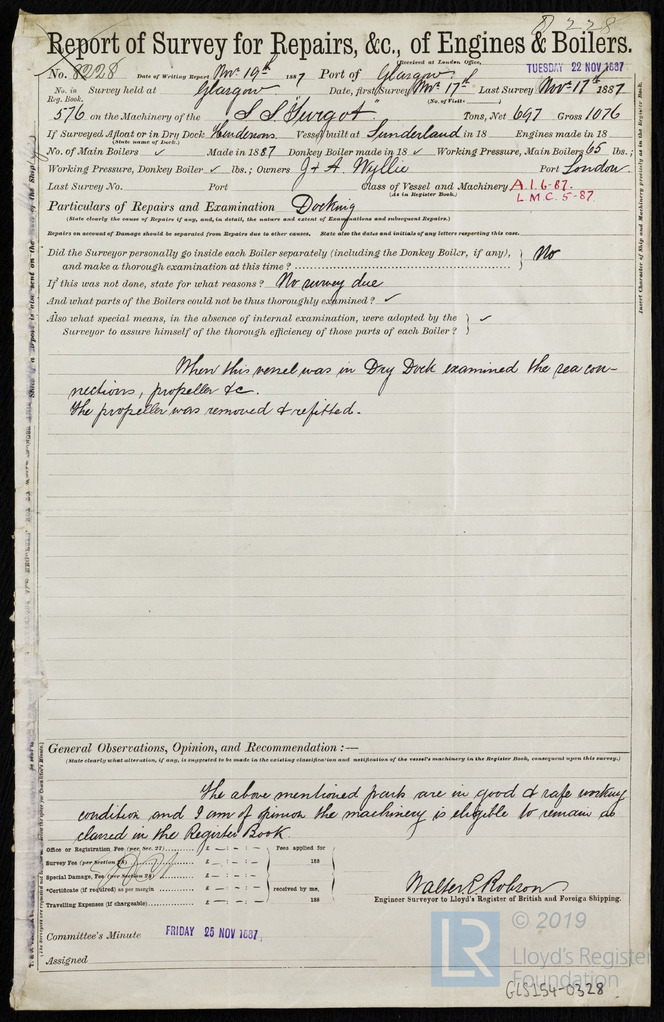 8228
Report of Survey for Repairs, &c., of Engines & Boilers.
(Received at London Office,
No. 8228 Date of Writing Report Nov. 19th 1887 Port of Glasgow TUESDAY 22 NOV 1887
No. in Reg. Book. Survey held at Glasgow Date, first Survey Nov. 17th Last Survey Nov. 17th 1887
(No. of Visits
576 on the Machinery of the S S "Turgot" Tons, Net 697 Gross 1076
If Surveyed Afloat or in Dry Dock Hendersons Vessel built at Sunderland in 18 Engines made in 18
(State name of Dock.)
No. of Main Boilers ✓ Made in 1887 Donkey Boiler made in 18 ✓ Working Pressure, Main Boilers 65 lbs.;
Working Pressure, Donkey Boiler ✓ lbs.; Owners J & A. Wyllie Port London
Last Survey No. Port Class of Vessel and Machinery A.1.6-87.
(As in Register Book.) L.M.C. 5-87
Particulars of Repairs and Examination Docking
(State clearly the cause of Repairs if any, and, in detail, the nature and extent of Examinations and subsequent Repairs.)
Repairs on account of Damage should be separated from Repairs due to other causes, State also the dates and initials of any letters respecting this case.
Did the Surveyor personally go inside each Boiler separately (including the Donkey Boiler, if any), No
and make a thorough examination at this time?
If this was not done, state for what reasons? No survey due
And what parts of the Boilers could not be thus thoroughly examined? ✓
Also what special means, in the absence of internal examination, were adopted by the ✓
Surveyor to assure himself of the thorough efficiency of those parts of each Boiler?
When this vessel was in Dry Dock examined the sea con-
nections, propeller &c.
The propeller was removed & refitted.
General Observations, Opinion, and Recommendation:—
(State clearly what alteration, if any, is suggested to be made in the existing classification and notification of the vessel's machinery in the Register Book, consequent upon this survey.)
The above mentioned parts are in good & safe working
condition and I am of opinion the machinery is eligible to remain as
classed in the Register Book.
Office or Registration Fee (per Sec. 27) £ — : — : — Fees applied for
Survey Fee (per Section 28) £ — : — : — 188
Special Damage, Fee (per Section 28) £ — : — : —
*Certificate (if required) as per margin £ — : — : — received by me,
Travelling Expenses (if chargeable) £ — : — : — 188
Walter E Robson
Engineer Surveyor to Lloyd's Register of British and Foreign Shipping.
Committee's Minute FRIDAY 25 NOV 1887
Assigned
© 2019
LR Lloyd's Register
Foundation
GLS154-0328
Insert Character of Ship and Machinery precisely as in the Register Book.